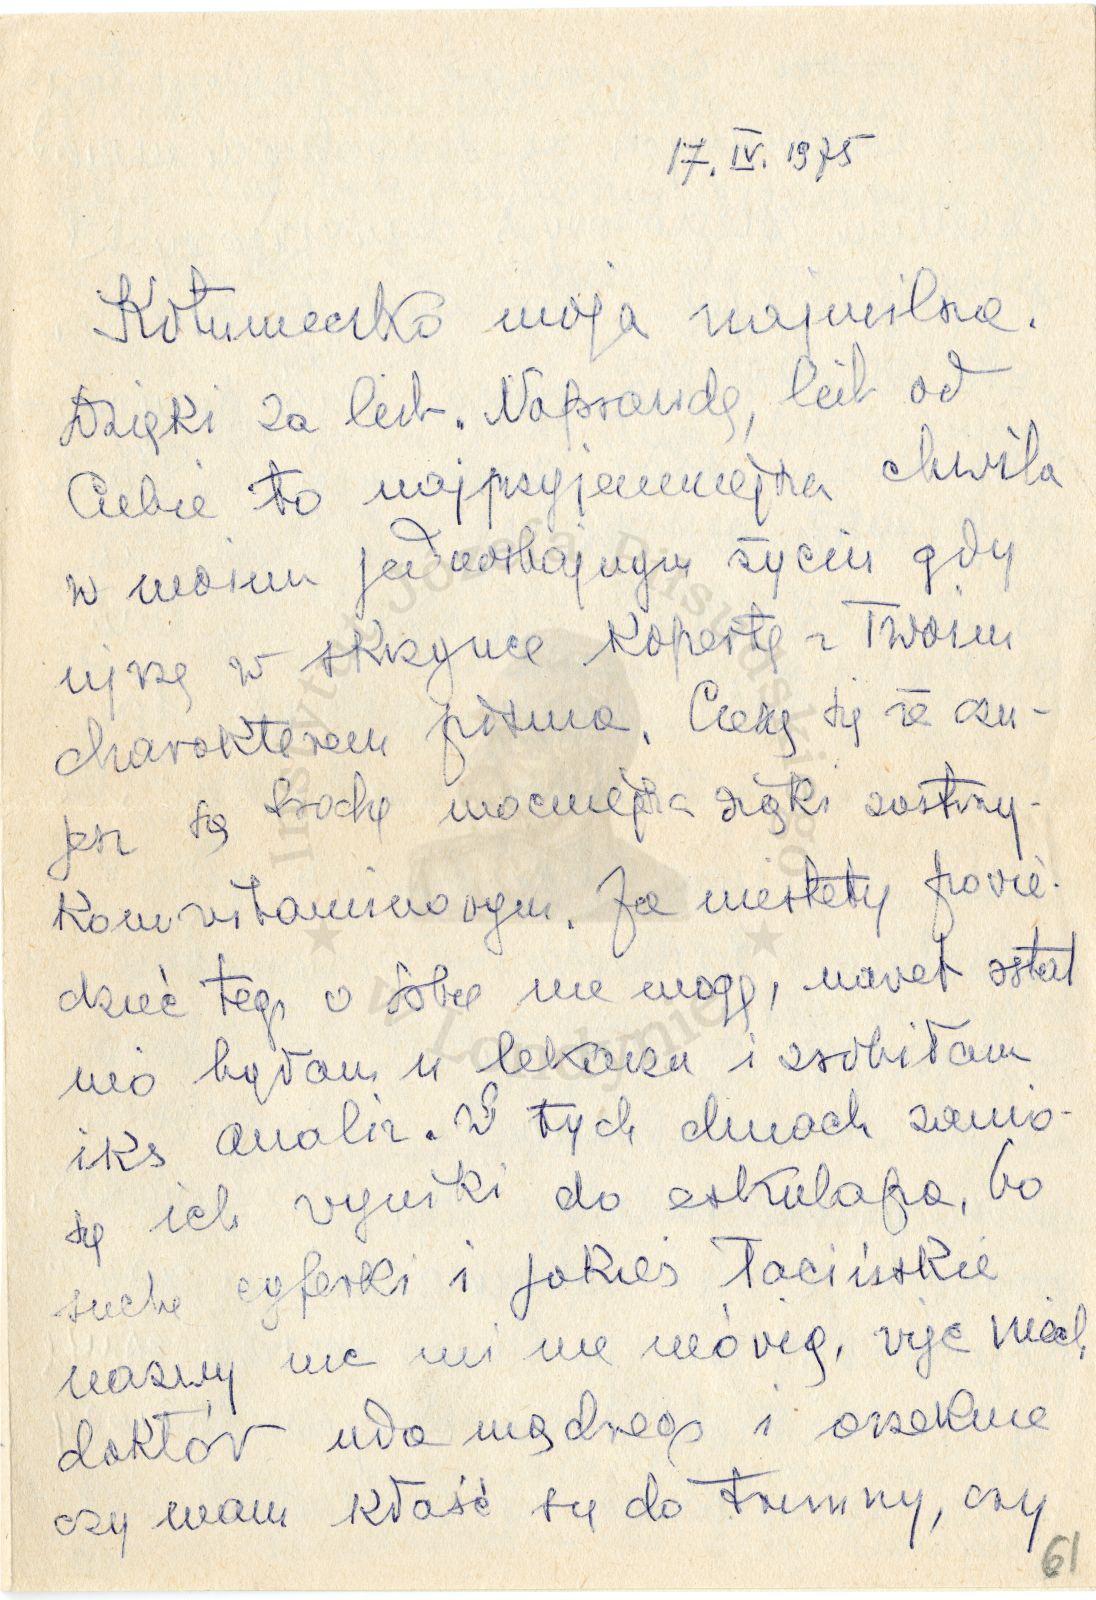 17. IV. 1975
moja najmilsza.
Dzięki za list. Naprawdę, list od
Ciebie to najprzyjemniejsza chwila
w moim jednostajnym życiu gdy
ujrzę w skrzynce kopertę z Twoim
charakterem pisma. Cieszę się że czu-
jesz się trochę mocniejsza dzięki zastrzy-
kom witaminowym. Ja niestety powie-
dzieć tego o sobie nie mogę, nawet ostat
nio byłam u lekarza i zrobiłam
iks analiz. W tych dniach zanio-
sę ich wyniki do eskulapa, bo
suche cyferki i jakieś łacińskie
nazwy nic mi nie mówią, więc niech
doktór uda mądrego i orzeknie
czy mam kłaść się do trumny, czy
61
Instytut Józefa Piłsudskiego
w Londynie